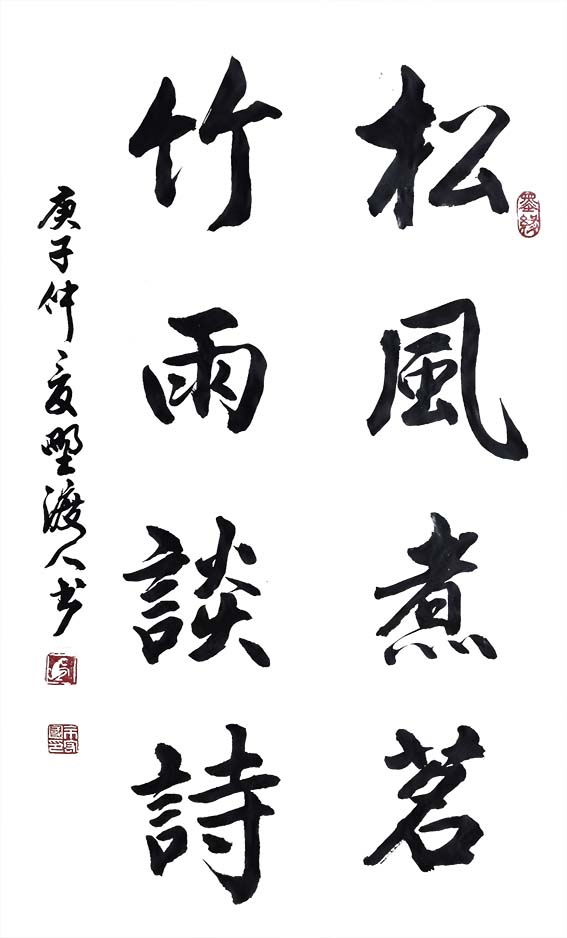 松風煮茗
竹雨談詩
庚子仲夏野渡人书
墨缘